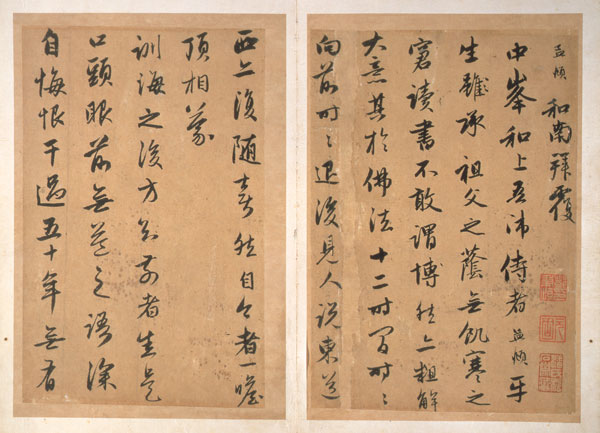 孟頫和南拜覆
中峯和上吾師侍者孟頫平
生雖承祖父之蔭無飢寒之
窘讀書不敢謂博然亦粗解
大意其於佛法十二時間時〻
向前時〻退後見人說東道
西亦復隨喜然自今者一瞻
頂相蒙
訓誨之後方知前者是
口頭眼前無益之語深
自悔恨干過五十年無有